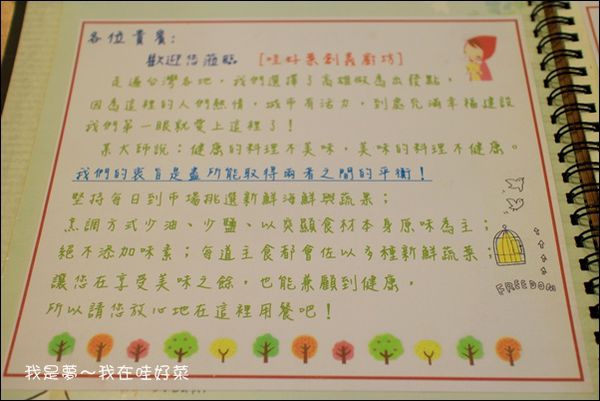 各位貴賓：
歡迎您蒞臨 [哇好菜創義廚坊]
走過台灣各地，我們選擇了高雄做為出發點，
因為這裡的人們熱情，城市有活力，到處充滿幸福建設
我們第一眼就愛上這裡了！
某大師說：健康的料理不美味，美味的料理不健康。
我們的衷旨是盡所能取得兩者之間的平衡！
堅持每日到市場挑選新鮮海鮮與蔬果；
烹調方式少油、少鹽、以突顯食材本身原味為主；
絕不添加味素；每道主食都會佐以多種新鮮蔬菜，
讓您在享受美味之餘，也能兼顧到健康，
所以請您放心地在這裡用餐吧！
FREEDOM
我是夢～我在哇好菜